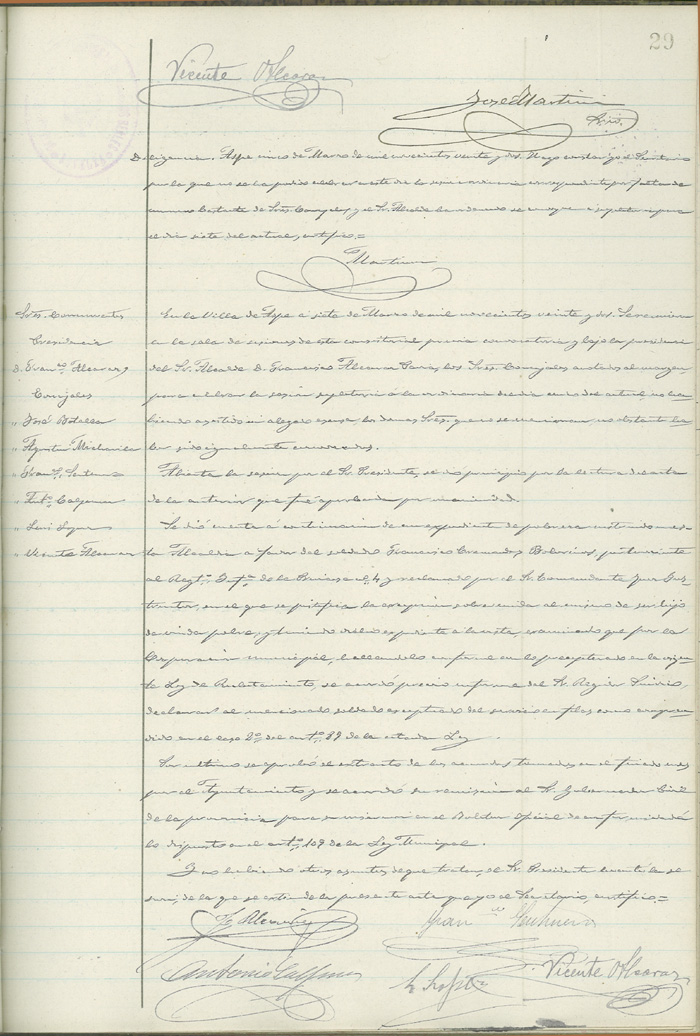 29
Vicente Alcaraz
José Martínez
Srio.
Diligencia. Aspe cinco de Marzo de mil novecientos veinte y dos. Hago constar yo el Secretario
por la que no se ha podido celebrar este día la sesión ordinaria correspondiente por falta de
numero bastante de Sres. Concejales, y el Sr. Alcalde ha ordenado se convoque a supletoria para
el día siete del actual, certifico.=
Martínez
Sres. Concurrentes
Presidencia
D. Franco. Alcaraz
Concejales
" José Botella
" Agustín
" Franco.
" Anto. Calpena
" Luis
" Vicente Alcaraz
En la Villa de Aspe a siete de Marzo de mil novecientos veinte y dos. Se reunieron
en la sala de sesiones de esta consistorial previa convocatoria y bajo la presidencia
del Sr. Alcalde D. Francisco Alcaraz los Sres. Concejales anotados al margen
para celebrar la sesión supletoria á la ordinaria del día cinco del actual, no ha-
biendo asistido ni alegado excusa, los demas Sres. que no se mencionan, no obstante ha-
ber sido igualmente convocados.
Abierta la sesión por el Sr. Presidente, se dio principio por la lectura del acta
de la anterior que fué aprobada por unanimidad.
Se dió cuenta á continuación de un expediente de pobreza instruido en es-
ta Alcaldia a favor del soldado Francisco Cremades perteneciente
al Regto. Infa. de la Princesa nº 4 y reclamado por el Sr. Comandante Juez Ins-
tructor, en el que se justifica la excepción sobrevenida al mismo de ser hijo
de viuda pobre, y teniendo dicho expediente á la vista, examinado que fué por la
Corporación municipal, hallandolo conforme con lo preceptuado en la vigen-
te Ley de Reclutamiento, se acordó previo informe del Sr. Regidor Síndico,
declarar al mencionado soldado exceptuado del servicio en filas como compren-
dido en el caso 2º del artº. 89 de la citada Ley.
Por ultimo se aprobó el extracto de los acuerdos tomados en el
por el Ayuntamiento y se acordó su remisión al Sr. Gobernador Civil
de la provincia para su inserción en el Boletin Oficial de conformidad á
lo dispuesto en el artº. 109 de la Ley Municipal.
Y no habiendo otros asuntos de que tratar, el Sr. Presidente levantó la se-
sión, de la que se extiende la presente acta que yo el Secretario, certifico.=
F. Alcaraz
Antonio Calpena
Vicente Alcaraz